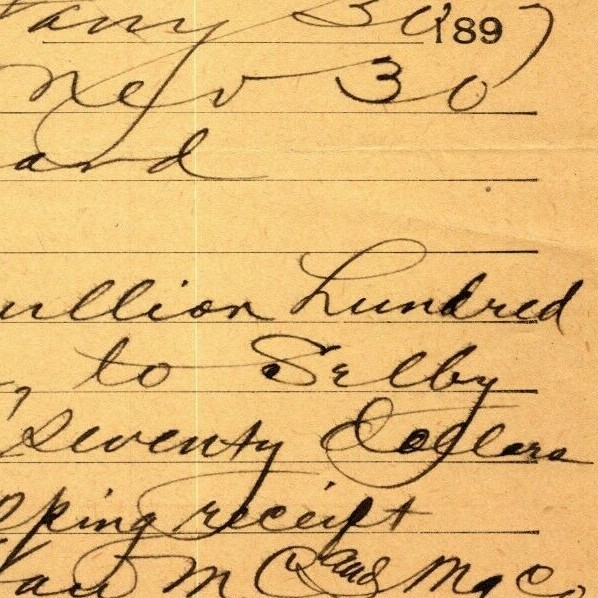 30 1897
Nev 30
and
ullion hundred
, to Selby
seventy dollars
pping receipt
M C and M g Co